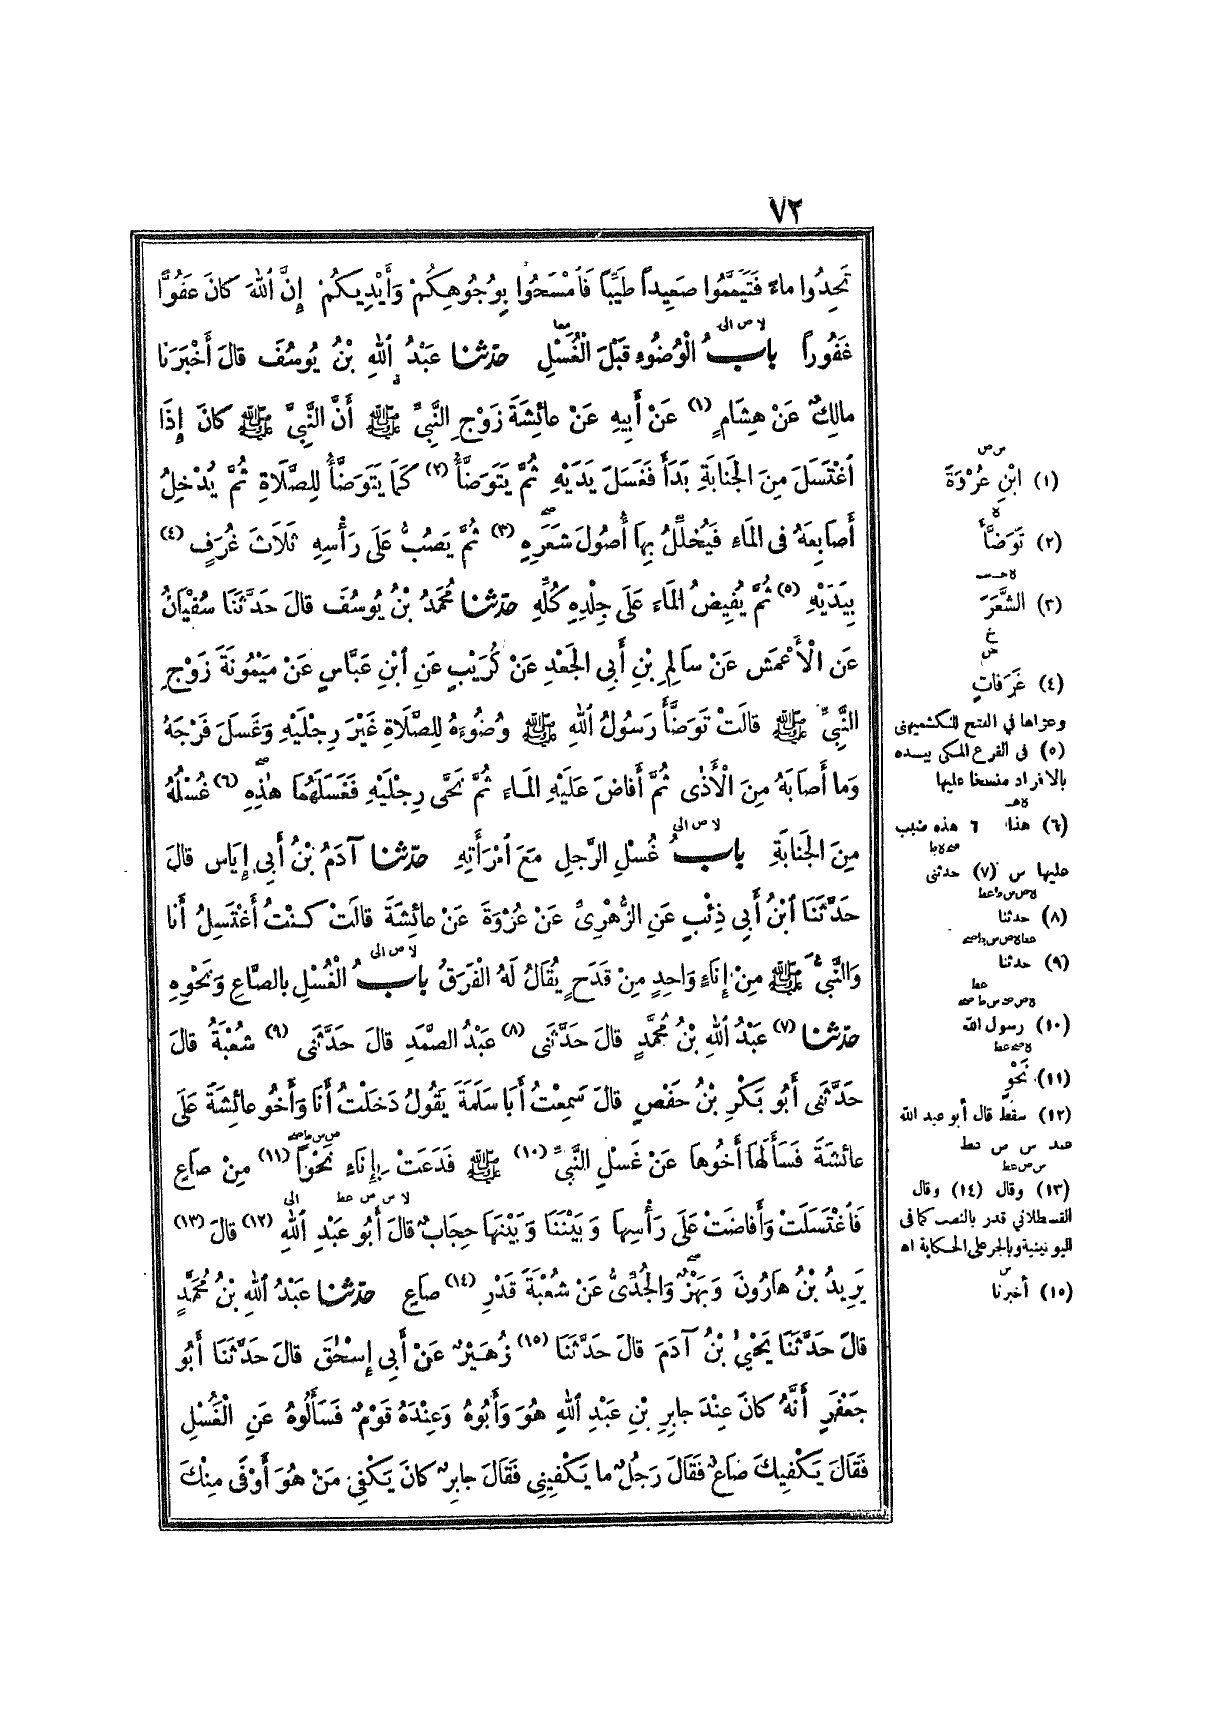 ٧٢
تَجِدُوا ماءً فَتَيَمَّمُوا صَعِيداً طَيِّباً فَامْسَحُوا بِوُجُوهِكُمْ وَأَيْدِيكُمْ إِنَّ اللهَ كانَ عَفُوًّا
غَفُوراً بابُ الْوُضُوءِ قَبْلَ الْغُسْلِ حدّثنا عَبْدُ اللهِ بْنُ يُوسُفَ قالَ أَخْبَرَنا
مالِكٌ عَنْ هِشَامٍ (١) عَنْ أَبِيهِ عَنْ عائِشَةَ زَوْجِ النَّبِيِّ ﷺ أَنَّ النَّبِيَّ ﷺ كانَ إِذَا
اغْتَسَلَ مِنَ الجَنابَةِ بَدَأَ فَغَسَلَ يَدَيْهِ ثُمَّ يَتَوَضَّأُ (٢) كَمَا يَتَوَضَّأُ لِلصَّلَاةِ ثُمَّ يُدْخِلُ
أَصابِعَهُ فى المَاءِ فَيُخَلِّلُ بِها أُصُولَ شَعَرِهِ (٣) ثُمَّ يَصُبُّ عَلَى رَأْسِهِ ثَلَاثَ غُرَفٍ (٤)
بِيَدَيْهِ (٥) ثُمَّ يُفِيضُ المَاءَ عَلَى جِلْدِهِ كُلِّهِ حدّثنا مُحَمَّدُ بْنُ يُوسُفَ قالَ حَدَّثَنَا سُفْيَانُ
عَنِ الْأَعْمَشِ عَنْ سالِمِ بْنِ أَبِي الجَعْدِ عَنْ كُرَيْبٍ عَنِ ابْنِ عَبَّاسٍ عَنْ مَيْمُونَةَ زَوْجِ
النَّبِيِّ ﷺ قالَتْ تَوَضَّأَ رَسُولُ اللهِ ﷺ وُضُوءَهُ لِلصَّلَاةِ غَيْرَ رِجْلَيْهِ وَغَسَلَ فَرْجَهُ
وَما أَصابَهُ مِنَ الْأَذَى ثُمَّ أَفاضَ عَلَيْهِ المَاءَ ثُمَّ نَحَّى رِجْلَيْهِ فَغَسَلَهُمَا هٰذِهِ (٦) غُسْلُهُ
مِنَ الجَنَابَةِ بابُ غُسْلِ الرَّجُلِ مَعَ امْرَأَتِهِ حدّثنا آدَمُ بْنُ أَبِي إِيَاسٍ قالَ
حَدَّثَنَا ابْنُ أَبِي ذِئْبٍ عَنِ الزُّهْرِىِّ عَنْ عُرْوَةَ عَنْ عائِشَةَ قالَتْ كُنْتُ أَغْتَسِلُ أَنَا
وَالنَّبِيُّ ﷺ مِنْ إِنَاءٍ وَاحِدٍ مِنْ قَدَحٍ يُقَالُ لَهُ الْفَرَقُ بابُ الْغُسْلِ بِالصَّاعِ وَنَحْوِهِ
حدّثنا (٧) عَبْدُ اللهِ بْنُ مُحَمَّدٍ قالَ حَدَّثَنِى (٨) عَبْدُ الصَّمَدِ قالَ حَدَّثَنِى (٩) شُعْبَةُ قالَ
حَدَّثَنِى أَبُو بَكْرِ بْنُ حَفْصٍ قالَ سَمِعْتُ أَبَا سَلَمَةَ يَقُولُ دَخَلْتُ أَنَا وَأَخُو عائِشَةَ عَلَى
عائِشَةَ فَسَأَلَهَا أَخُوهَا عَنْ غَسْلِ النَّبِيِّ (١٠) ﷺ فَدَعَتْ بِإِنَاءٍ نَحْواً (١١) مِنْ صاعٍ
فَاغْتَسَلَتْ وَأَفاضَتْ عَلَى رَأْسِها وَبَيْنَنَا وَبَيْنَهَا حِجَابٌ قالَ أَبُو عَبْدِ اللهِ (١٢) قالَ (١٣)
يَزِيدُ بْنُ هارُونَ وَبَهْزٌ وَالجُدِّىُّ عَنْ شُعْبَةَ قَدْرِ (١٤) صاعٍ حدّثنا عَبْدُ اللهِ بْنُ مُحَمَّدٍ
قالَ حَدَّثَنَا يَحْيَى بْنُ آدَمَ قالَ حَدَّثَنَا (١٥) زُهَيْرٌ عَنْ أَبِي إِسْحٰقَ قالَ حَدَّثَنَا أَبُو
جَعْفَرٍ أَنَّهُ كانَ عِنْدَ جابِرِ بْنِ عَبْدِ اللهِ هُوَ وَأَبُوهُ وَعِنْدَهُ قَوْمٌ فَسَأَلُوهُ عَنِ الْغُسْلِ
فَقَالَ يَكْفِيكَ صَاعٌ فَقَالَ رَجُلٌ ما يَكْفِينِى فَقَالَ جابِرٌ كانَ يَكْفِى مَنْ هُوَ أَوْفَى مِنْكَ
(١) ابْنِ عُرْوَةَ
(٢) تَوَضَّأَ
(٣) الشَّعَرَ
(٤) غَرَفاتٍ
وعزاها في الفتح للكشميهنى
(٥) فى الفرع المكى بيده
بالافراد منسخا عليها
(٦) هذا ٦ هذه ضبب
عليها س (٧) حدثنى
(٨) حدثنا
(٩) حدثنا
(١٠) رسول الله
(١١) نَحْوٍ
(١٢) سقط قال أبو عبد الله
عند س ص ط
(١٣) وقال (١٤) وقال
القسطلاني قدر بالنصب كما فى
اليونينية وبالجر على الحكاية اه
(١٥) أخبرنا